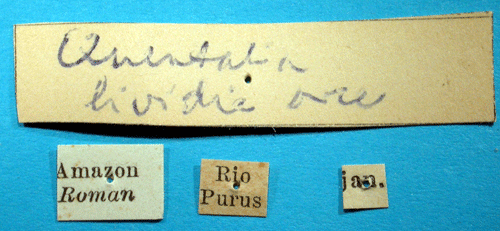 Quentalia
lividia
Amazon
Roman
Rio
Purus
jan.